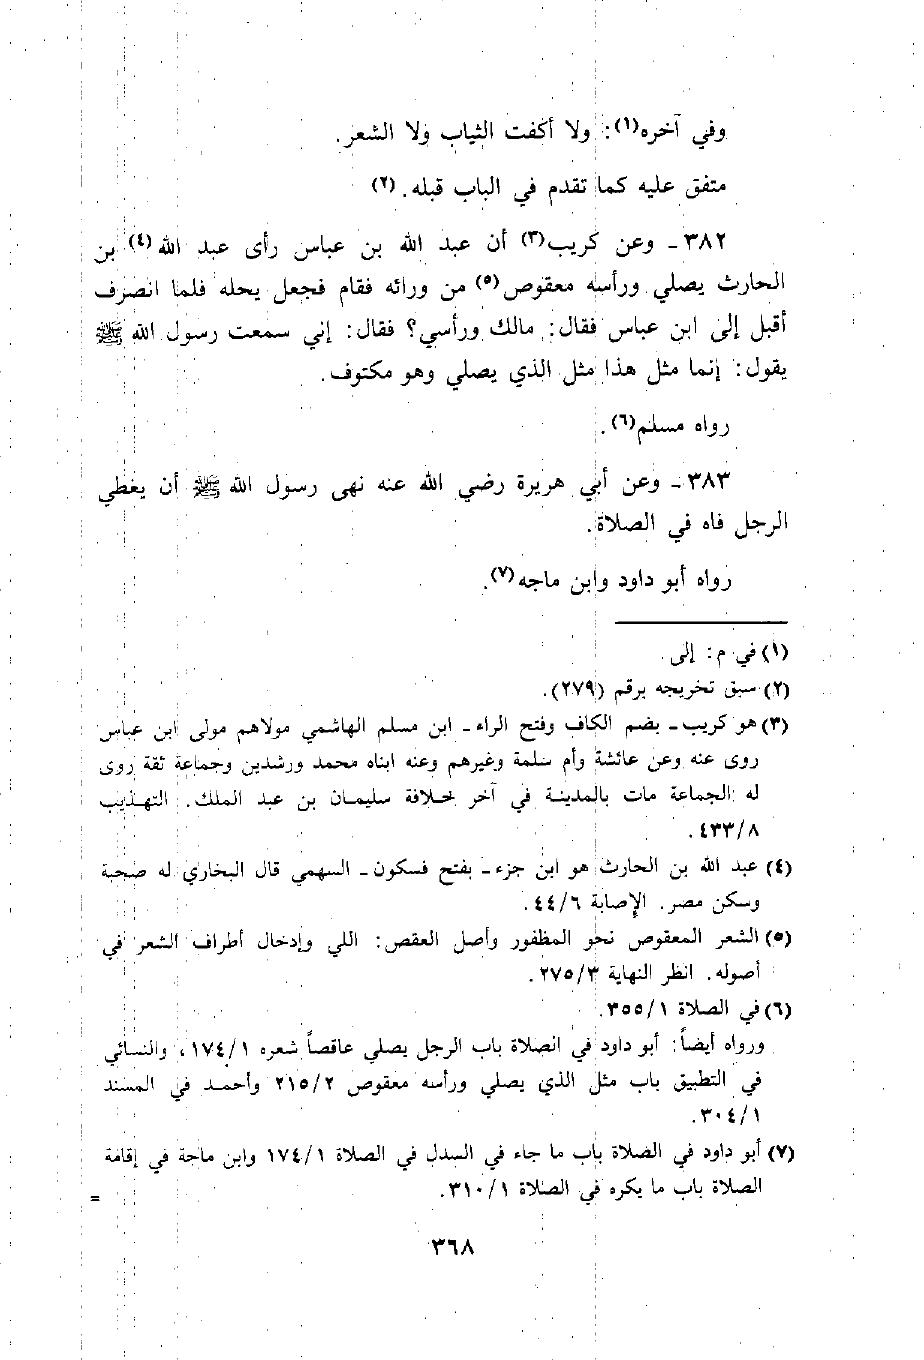 وفي آخره(١): ولا أكفت الثياب ولا الشعر.
متفق عليه كما تقدم في الباب قبله. (٢)
٣٨٢ - وعن كريب(٣) أن عبد الله بن عباس رأى عبد الله(٤) بن
الحارث يصلي ورأسه معقوص(٥) من ورائه فقام فجعل يحله فلما انصرف
أقبل إلى ابن عباس فقال: مالك ورأسي؟ فقال: إني سمعت رسول الله ﷺ
يقول: إنما مثل هذا مثل الذي يصلي وهو مكتوف.
رواه مسلم(٦).
٣٨٣ - وعن أبي هريرة رضي الله عنه نهى رسول الله ﷺ أن يغطي
الرجل فاه في الصلاة.
رواه أبو داود وابن ماجه(٧).
(١) في م: إلى.
(٢) سبق تخريجه برقم (٢٧٩).
(٣) هو كريب - بضم الكاف وفتح الراء - ابن مسلم الهاشمي مولاهم مولى ابن عباس
روى عنه وعن عائشة وأم سلمة وغيرهم وعنه ابناه محمد ورشدين وجماعة ثقة روى
له الجماعة مات بالمدينة في آخر خلافة سليمان بن عبد الملك. التهذيب
٤٣٣/٨.
(٤) عبد الله بن الحارث هو ابن جزء - بفتح فسكون - السهمي قال البخاري له صحبة
وسكن مصر. الإصابة ٤٤/٦.
(٥) الشعر المعقوص نحو المظفور وأصل العقص: اللي وإدخال أطراف الشعر في
أصوله. انظر النهاية ٢٧٥/٣.
(٦) في الصلاة ٣٥٥/١.
ورواه أيضاً: أبو داود في الصلاة باب الرجل يصلي عاقصاً شعره ١٧٤/١، والنسائي
في التطبيق باب مثل الذي يصلي ورأسه معقوص ٢١٥/٢ وأحمد في المسند
٣٠٤/١.
(٧) أبو داود في الصلاة باب ما جاء في السدل في الصلاة ١٧٤/١ وابن ماجة في إقامة
الصلاة باب ما يكره في الصلاة ٣١٠/١.
=
٣٦٨